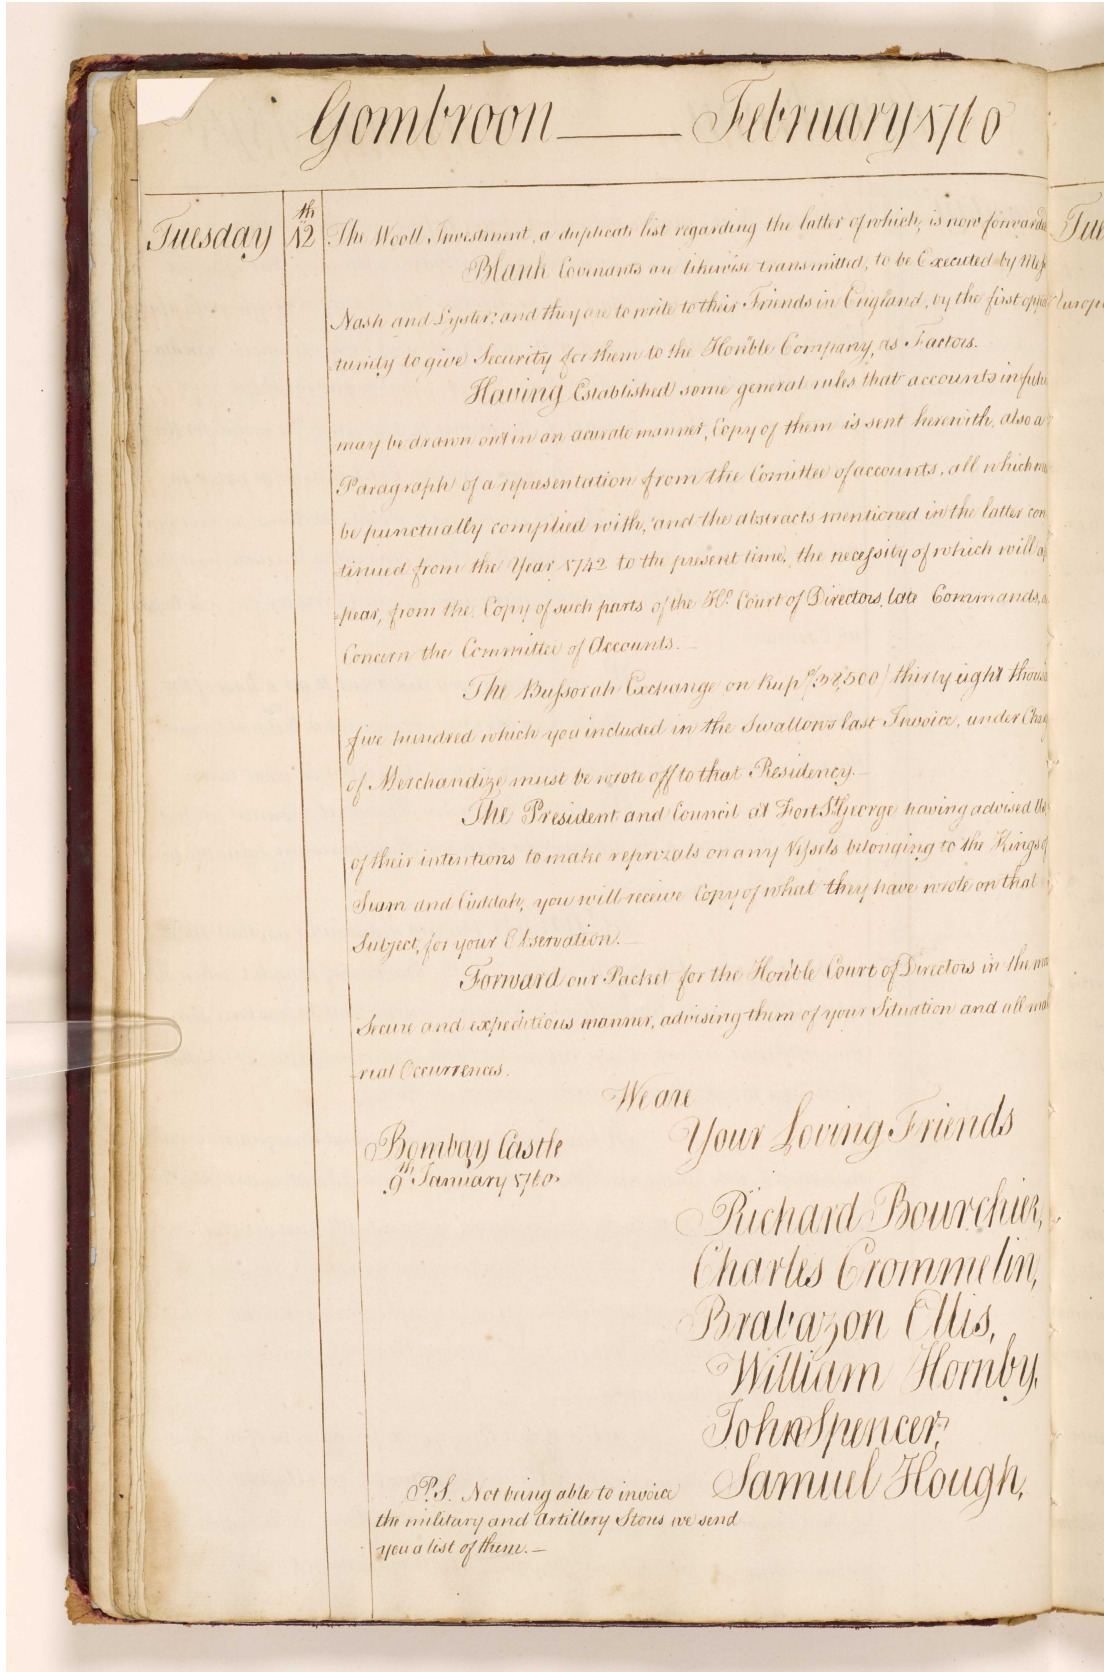 Gombroon — February 1760
Tuesday 12th The Wooll Investment, a duplicate list regarding the latter of which, is now forwarde
Blank Covenants are likewise transmitted, to be Executed by Mess
Nash and Lyster; and they are to write to their Friends in England, by the first oppor
tunity to give Security for them to the Hon'ble Company, as Factors.
Having Established some general rules that accounts in futu
may be drawn out in an acurate manner, Copy of them is sent herewith, also a
Paragraph of a representation from the Comittee of accounts, all which mu
be punctually complied with, and the abstracts mentioned in the latter con
tinued from the Year 1742 to the present time, the necessity of which will ap
pear, from the Copy of such parts of the Ho. Court of Directors, late Commands, as
Concern the Committee of Accounts.
The Bussorah Exchange on Rup.s (38,500) thirty eight thousa
five hundred which you included in the Swallows last Invoice, under Charg
of Merchandize must be wrote off to that Residency.
The President and Council at Fort St. George having advised Us
of their intentions to make reprizals on any Vessels belonging to the Kings of
Siam and Quddah, you will receive Copy of what they have wrote on that
Subject, for your Observation.
Forward our Packet for the Hon'ble Court of Directors in the mo
Secure and expeditious manner, advising them of your Situation and all mat
rial Occurrences.
We are
Your Loving Friends
Bombay Castle
9th January 1760.
Richard Bourchier,
Charles Crommelin,
Brabazon Ellis,
William Hornby,
John Spencer,
Samuel Hough,
P.S. Not being able to invoice
the military and Artillery Stores we send
you a list of them. —
Tue
Europ